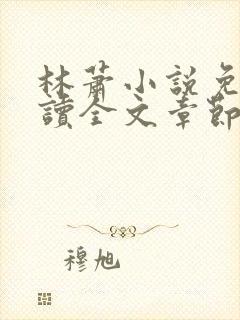 林蕭小說免
讀全文章節
穆旭